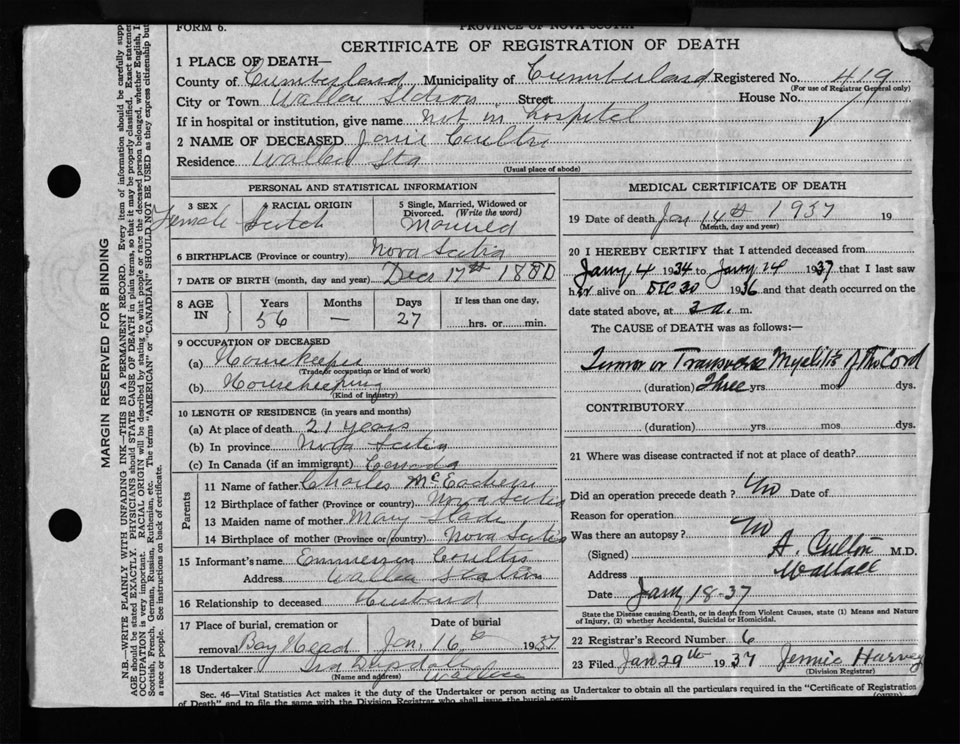 FORM 6.
PROVINCE OF NOVA SCOTIA
CERTIFICATE OF REGISTRATION OF DEATH
1 PLACE OF DEATH—
County of Cumberland Municipality of Cumberland Registered No. 419
(For use of Registrar General only)
City or Town Wallace Station Street House No.
If in hospital or institution, give name not in hospital
2 NAME OF DECEASED Janie Coulter
Residence Wallace Sta
(Usual place of abode)
PERSONAL AND STATISTICAL INFORMATION
3 SEX Female
4 RACIAL ORIGIN Scotch
5 Single, Married, Widowed or Divorced. (Write the word) Married
6 BIRTHPLACE (Province or country) Nova Scotia
7 DATE OF BIRTH (month, day and year) Dec 17th 1880
8 AGE IN Years 56 Months — Days 27 If less than one day, hrs. or min.
9 OCCUPATION OF DECEASED
(a) Housekeeper
(Trade, occupation or kind of work)
(b) Housekeeping
(Kind of industry)
10 LENGTH OF RESIDENCE (in years and months)
(a) At place of death 21 years
(b) In province Nova Scotia
(c) In Canada (if an immigrant) Canada
Parents
11 Name of father Charles McEachern
12 Birthplace of father (Province or country) Nova Scotia
13 Maiden name of mother Mary Slade
14 Birthplace of mother (Province or country) Nova Scotia
15 Informant's name Emmerson Coulter
Address Wallace Station
16 Relationship to deceased Husband
17 Place of burial, cremation or removal Bay Head Date of burial Jan. 16th 1937
18 Undertaker Wallace
(Name and address)
MEDICAL CERTIFICATE OF DEATH
19 Date of death Jan 14th 1937 19
(Month, day and year)
20 I HEREBY CERTIFY that I attended deceased from
Jany 4 1934 to Jany 14 1937 that I last saw
her alive on Dec 30 1936 and that death occurred on the
date stated above, at 3 a. m.
The CAUSE of DEATH was as follows:—
Tumor or Transverse Myelitis of the Cord
(duration) Three yrs. mos. dys.
CONTRIBUTORY
(duration) yrs. mos. dys.
21 Where was disease contracted if not at place of death?
Did an operation precede death? No Date of
Reason for operation
Was there an autopsy? No
(Signed) M.D.
Address Wallace
Date Jany 18-37
State the Disease causing Death, or in death from Violent Causes, state (1) Means and Nature of Injury, (2) whether Accidental, Suicidal or Homicidal.
22 Registrar's Record Number 6
23 Filed Jan 29th 1937 Jennie Harvey
(Division Registrar)
Sec. 46—Vital Statistics Act makes it the duty of the Undertaker or person acting as Undertaker to obtain all the particulars required in the "Certificate of Registration
of Death" and to file the same with the Division Registrar who shall issue the burial permit.
MARGIN RESERVED FOR BINDING
N.B.—WRITE PLAINLY WITH UNFADING INK—THIS IS A PERMANENT RECORD. Every item of information should be carefully supp
AGE should be stated EXACTLY. PHYSICIANS should STATE CAUSE OF DEATH in plain terms, so that it may be properly classified. Exact statement
OCCUPATION is very important. RACIAL ORIGIN will be described by stating to what people or race the deceased person belonged, whether English, I
Scottish, French, German, Russian, Ruthenian, etc. The terms "AMERICAN" or "CANADIAN" SHOULD NOT BE USED as they express citizenship but
a race or people. See instructions on back of certificate.